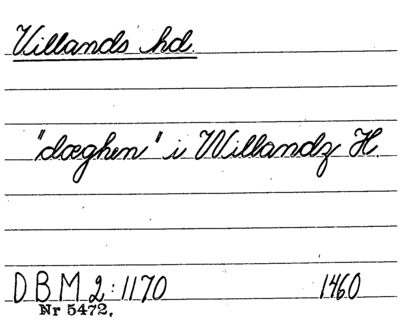 Villands hd
"dæghen" i Willandz H.
DBM 2:1170 1460
Nr 5472.